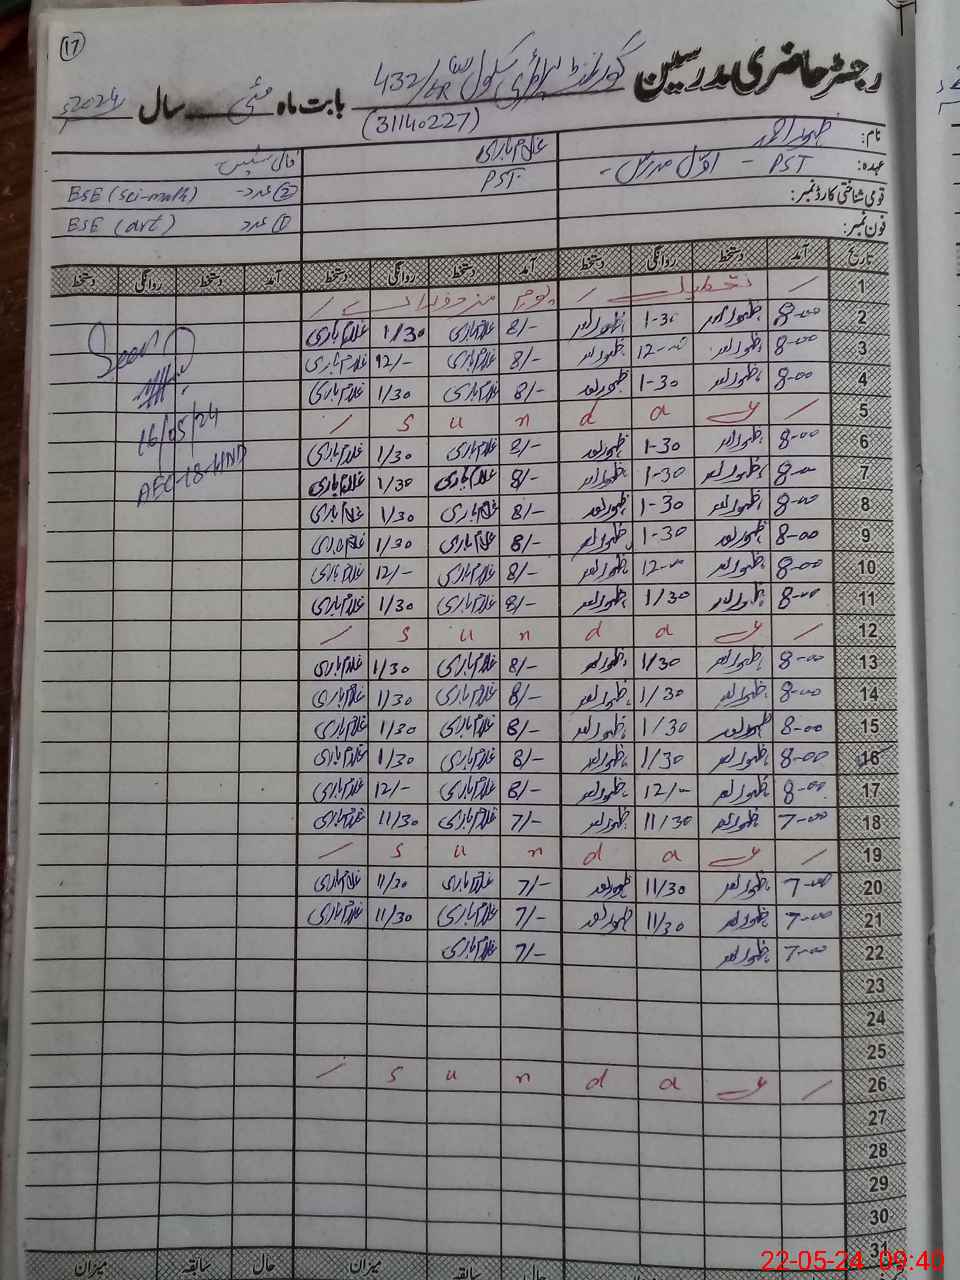 17
رجسٹر حاضری مدرسین گورنمنٹ پرائمری سکول 432/6R
(31140227)
بابت ماہ مئی سال 2024ء
نام: ظہور احمد
غلام باری
عہدہ: PST - اول مدرس -
PST
قومی شناختی کارڈ نمبر:
BSE (Sci-math) ② عدد
فون نمبر:
BSE (art) ① عدد
تاریخ آمد دستخط روانگی دستخط آمد دستخط روانگی دستخط آمد دستخط روانگی دستخط
1 / تعطیل / یوم مزدوراں /
2 8-00 ظہور احمد 1-30 ظہور احمد 8/- غلام باری 1/30 غلام باری
3 8-00 ظہور احمد 12-00 ظہور احمد 8/- غلام باری 12/- غلام باری
4 8-00 ظہور احمد 1-30 ظہور احمد 8/- غلام باری 1/30 غلام باری
5 / S u n d a y /
6 8-00 ظہور احمد 1-30 ظہور احمد 8/- غلام باری 1/30 غلام باری
7 8-00 ظہور احمد 1-30 ظہور احمد 8/- غلام باری 1/30 غلام باری
8 8-00 ظہور احمد 1-30 ظہور احمد 8/- غلام باری 1/30 غلام باری
9 8-00 ظہور احمد 1-30 ظہور احمد 8/- غلام باری 1/30 غلام باری
10 8-00 ظہور احمد 12-00 ظہور احمد 8/- غلام باری 12/- غلام باری
11 8-00 ظہور احمد 1/30 ظہور احمد 8/- غلام باری 1/30 غلام باری
12 / S u n d a y /
13 8-00 ظہور احمد 1/30 ظہور احمد 8/- غلام باری 1/30 غلام باری
14 8-00 ظہور احمد 1/30 ظہور احمد 8/- غلام باری 1/30 غلام باری
15 8-00 ظہور احمد 1/30 ظہور احمد 8/- غلام باری 1/30 غلام باری
16 8-00 ظہور احمد 1/30 ظہور احمد 8/- غلام باری 1/30 غلام باری
17 8-00 ظہور احمد 12/- ظہور احمد 8/- غلام باری 12/- غلام باری
18 7-00 ظہور احمد 11/30 ظہور احمد 7/- غلام باری 11/30 غلام باری
19 / S u n d a y /
20 7-00 ظہور احمد 11/30 ظہور احمد 7/- غلام باری 11/30 غلام باری
21 7-00 ظہور احمد 11/30 ظہور احمد 7/- غلام باری 11/30 غلام باری
22 7-00 ظہور احمد 7/- غلام باری
23
24
25
26 / S u n d a y /
27
28
29
30
31
Seen
16/05/24
AEO-18-HND
حال سابقہ میزان حال سابقہ میزان
22-05-24 09:40